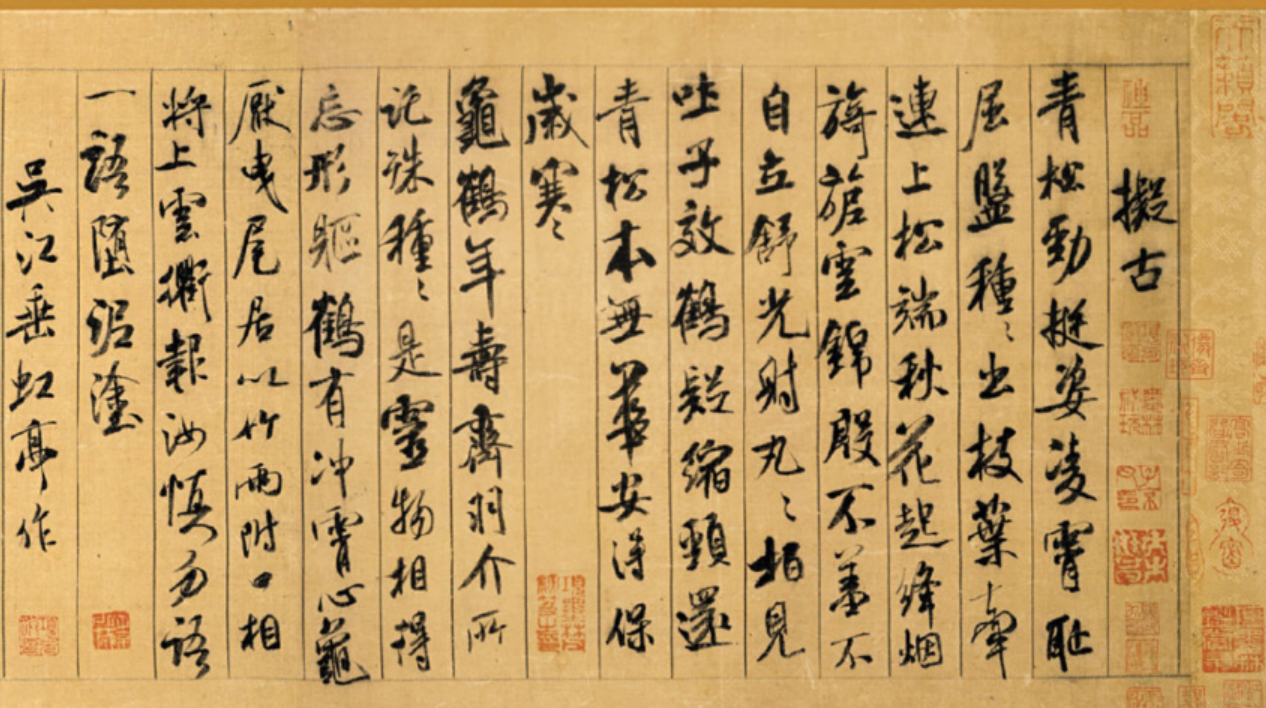 擬古
青松勁挺姿凌霄恥
屈盤種〻出枝葉牽
連上松端秋花起絳烟
旖旎雲錦殷不羞不
自立舒光射丸〻柏見
吐子效鶴疑縮頸還
青松本無華安得保
歲寒
龜鶴年壽齊羽介所
託殊種〻是靈物相得
忘形軀鶴有冲霄心龜
厭曳尾居以竹兩附口相
將上雲衢報汝慎勿語
一語墮泥塗
吳江垂虹亭作